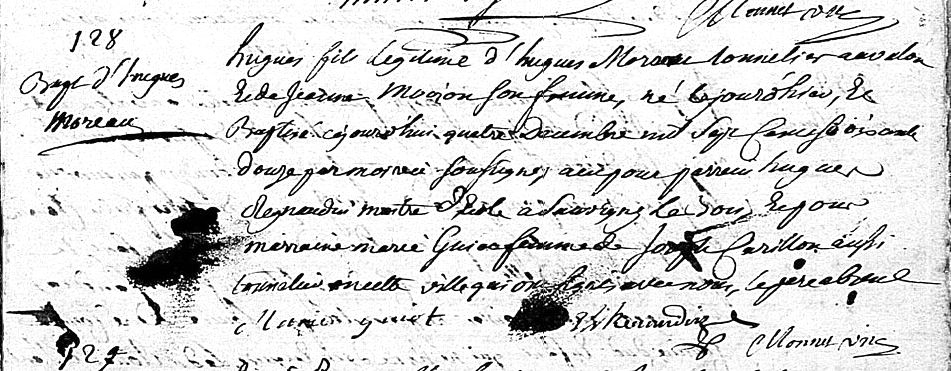 Monnet vic
128
Bapt d'hugues
Moreau
hugues fils legitime d'hugues Moreau tonnelier avalon
et de Jeanne son femme, né le jour d'hier, et
Baptisé cejourdhui quatre Decembre mil sept Cent soixante
douze par moi vic soussigné, aiant pour parrein hugues
Regnaudin maitre d'Ecole a Sauvigny le Bois, et pour
marraine marie femme de Joseph Carillon aussi
tonnelier en cette ville qui ont signés avec nous, le pere absent
Monnet vic
127